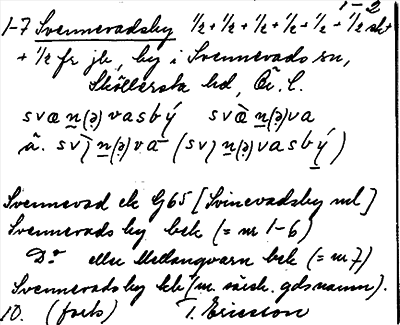 1-2
1-7 Svennevadsby ½ + ½ + ½ + ½ + ½ + ½ sk
+ ½ fr jb, by i Svennevads sn,
Sköllersta hd, Ör. l.
svæn(ə)vasbý svæ̀n(ə)va
ä. svn(ə)va (svn(ə)vasbý)
Svennevad ek G65 [Svinevadsby ml]
Svennevads by bek (= nr 1-6)
Do eller Mellanqvarn bek (= nr 7)
Svennevadsby kb (m. särsk. gdsnamn).
10. (forts) T. Ericsson